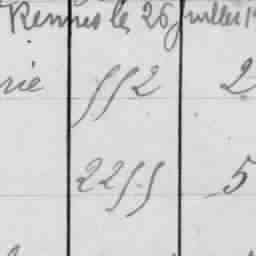 Rennes le 26 juillet 1
rie 552 2
2255 5